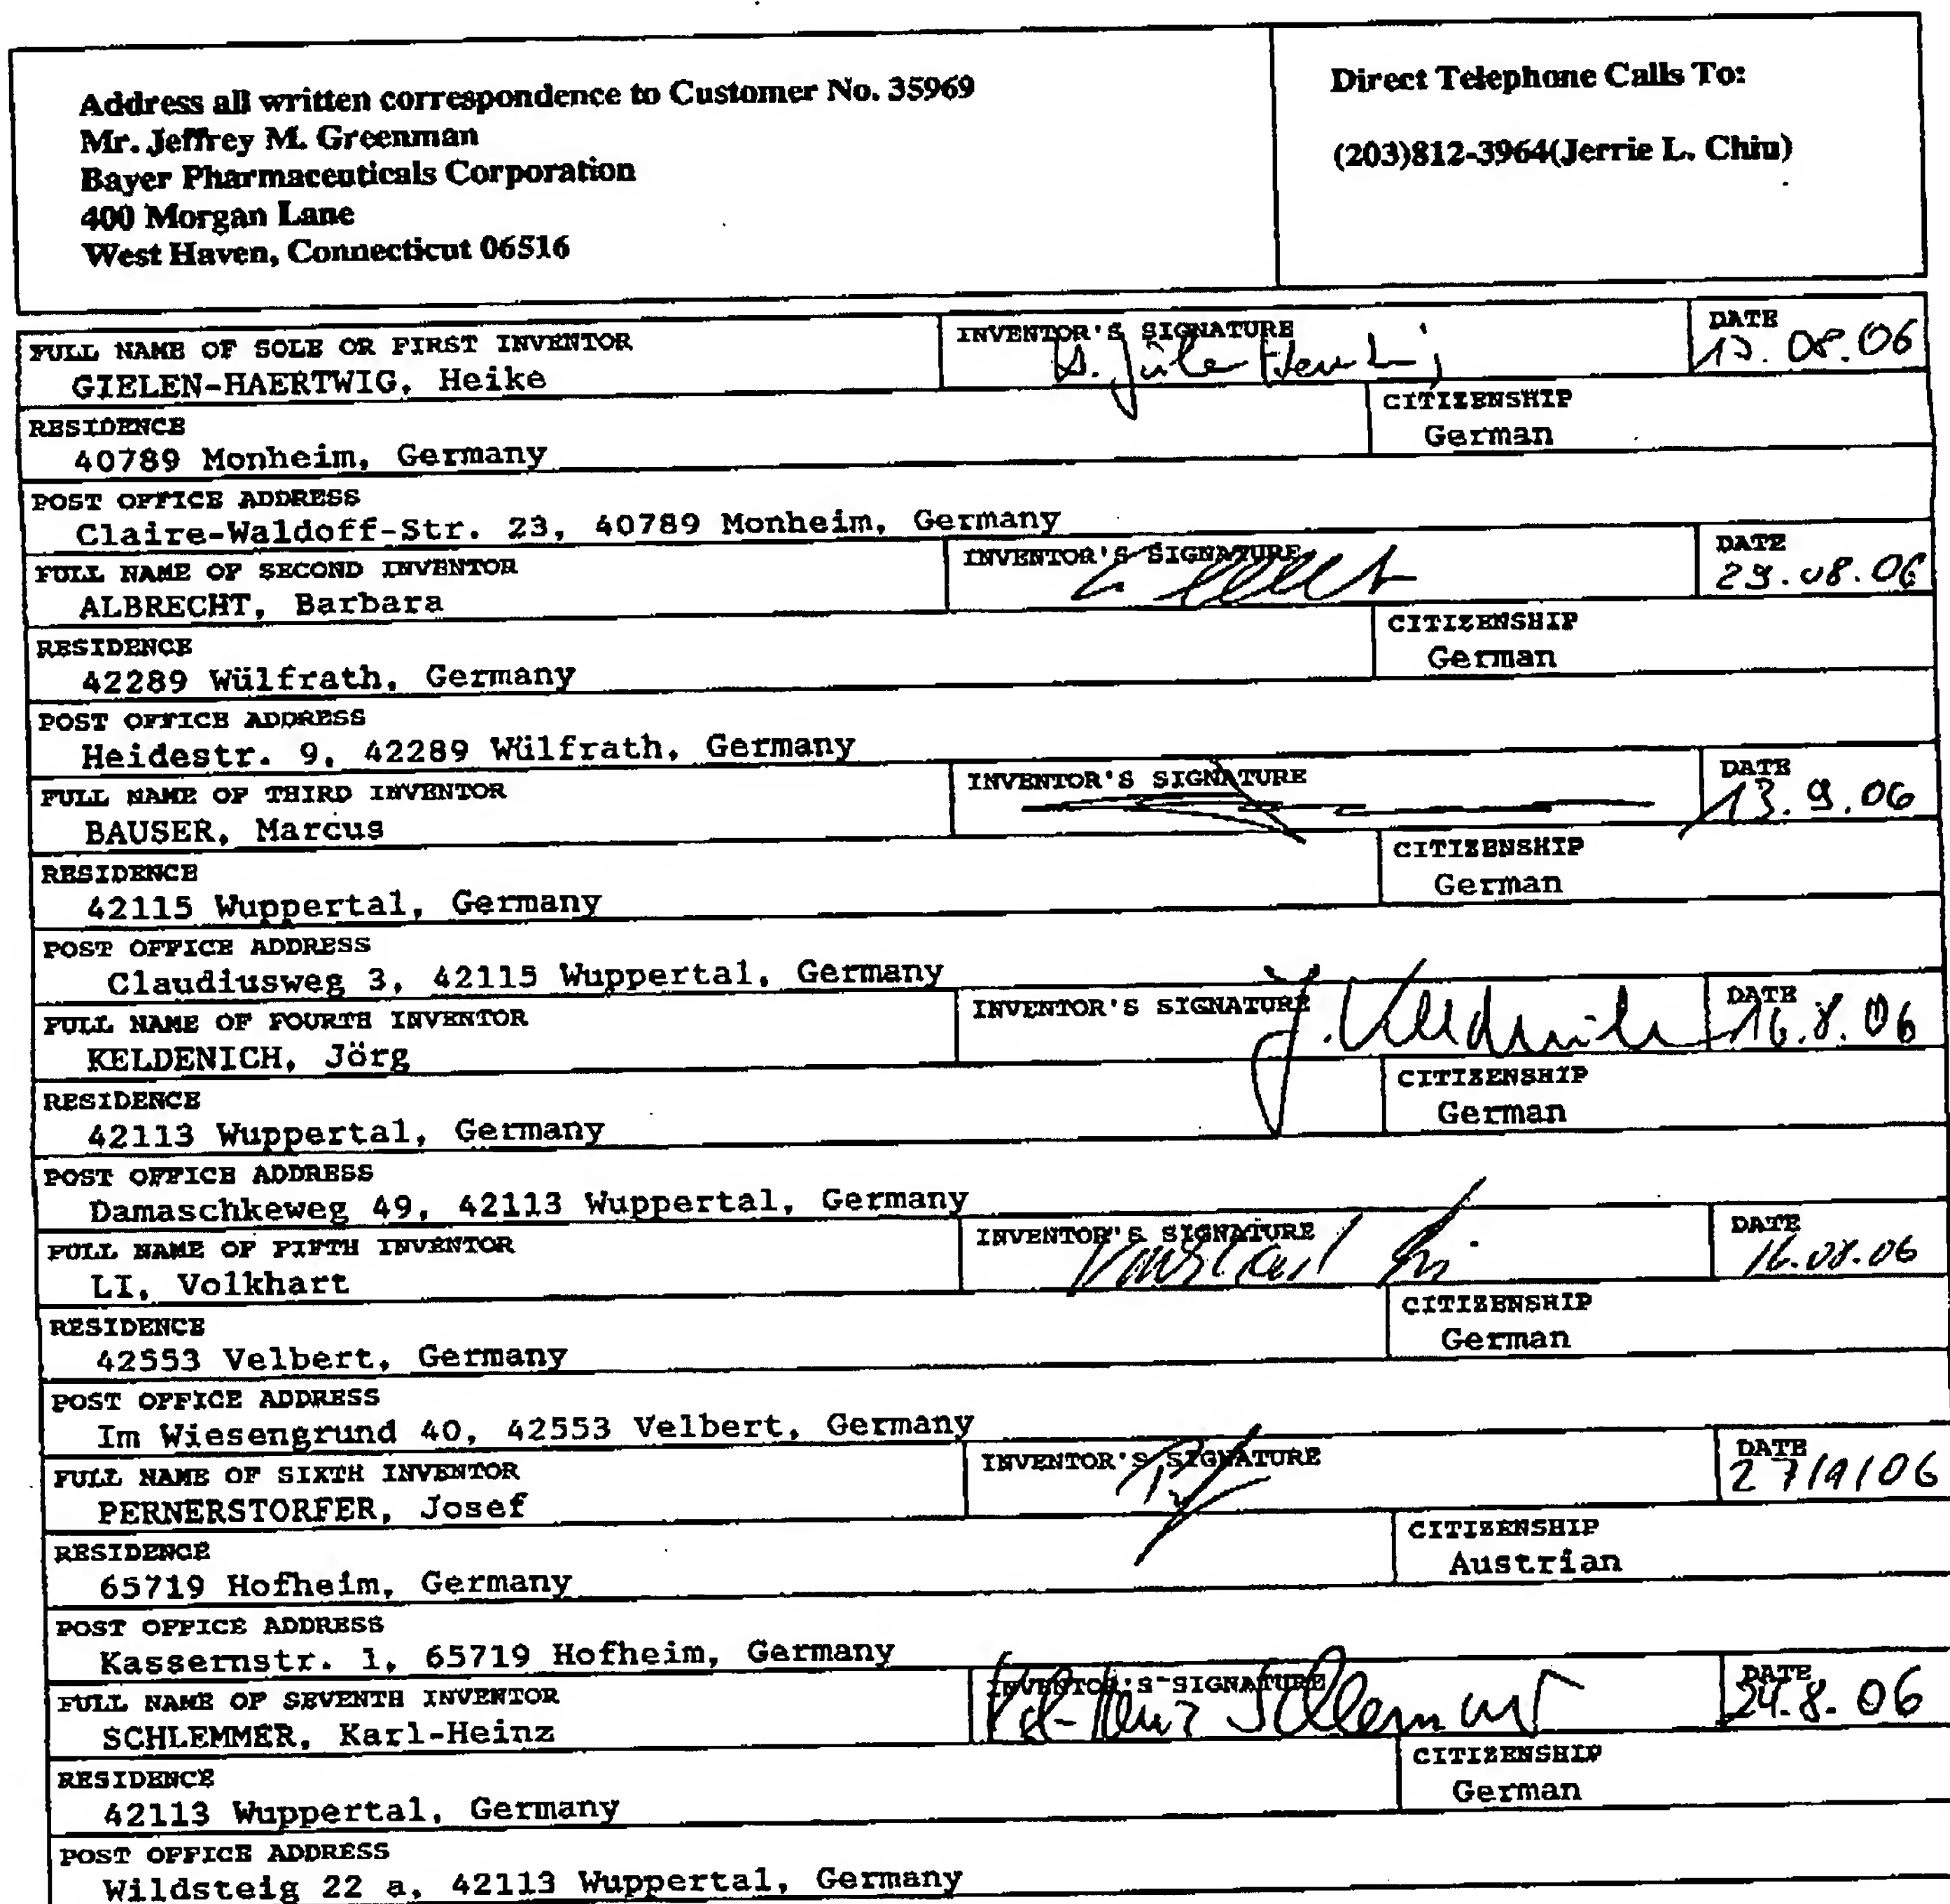 Address all written correspondence to Customer No. 35969
Mr. Jeffrey M. Greenman
Bayer Pharmaceuticals Corporation
400 Morgan Lane
West Haven, Connecticut 06516
Direct Telephone Calls To:
(203)812-3964(Jerrie L. Chiu)
FULL NAME OF SOLE OR FIRST INVENTOR
GIELEN-HAERTWIG, Heike
INVENTOR'S SIGNATURE
DATE
08.06
RESIDENCE
40789 Monheim, Germany
CITIZENSHIP
German
POST OFFICE ADDRESS
Claire-Waldoff-Str. 23, 40789 Monheim, Germany
FULL NAME OF SECOND INVENTOR
ALBRECHT, Barbara
INVENTOR'S SIGNATURE
DATE
29.08.06
RESIDENCE
42289 Wülfrath, Germany
CITIZENSHIP
German
POST OFFICE ADDRESS
Heidestr. 9, 42289 Wülfrath, Germany
FULL NAME OF THIRD INVENTOR
BAUSER, Marcus
INVENTOR'S SIGNATURE
DATE
13.9.06
RESIDENCE
42115 Wuppertal, Germany
CITIZENSHIP
German
POST OFFICE ADDRESS
Claudiusweg 3, 42115 Wuppertal, Germany
FULL NAME OF FOURTH INVENTOR
KELDENICH, Jörg
INVENTOR'S SIGNATURE
J. Keldenich
DATE
16.8.06
RESIDENCE
42113 Wuppertal, Germany
CITIZENSHIP
German
POST OFFICE ADDRESS
Damaschkeweg 49, 42113 Wuppertal, Germany
FULL NAME OF FIFTH INVENTOR
LI, Volkhart
INVENTOR'S SIGNATURE
Volkhart Li
DATE
16.08.06
RESIDENCE
42553 Velbert, Germany
CITIZENSHIP
German
POST OFFICE ADDRESS
Im Wiesengrund 40, 42553 Velbert, Germany
FULL NAME OF SIXTH INVENTOR
PERNERSTORFER, Josef
INVENTOR'S SIGNATURE
DATE
27/9/06
RESIDENCE
65719 Hofheim, Germany
CITIZENSHIP
Austrian
POST OFFICE ADDRESS
Kassernstr. 1, 65719 Hofheim, Germany
FULL NAME OF SEVENTH INVENTOR
SCHLEMMER, Karl-Heinz
INVENTOR'S SIGNATURE
Karl-Heinz Schlemmer
DATE
24.8.06
RESIDENCE
42113 Wuppertal, Germany
CITIZENSHIP
German
POST OFFICE ADDRESS
Wildsteig 22 a, 42113 Wuppertal, Germany